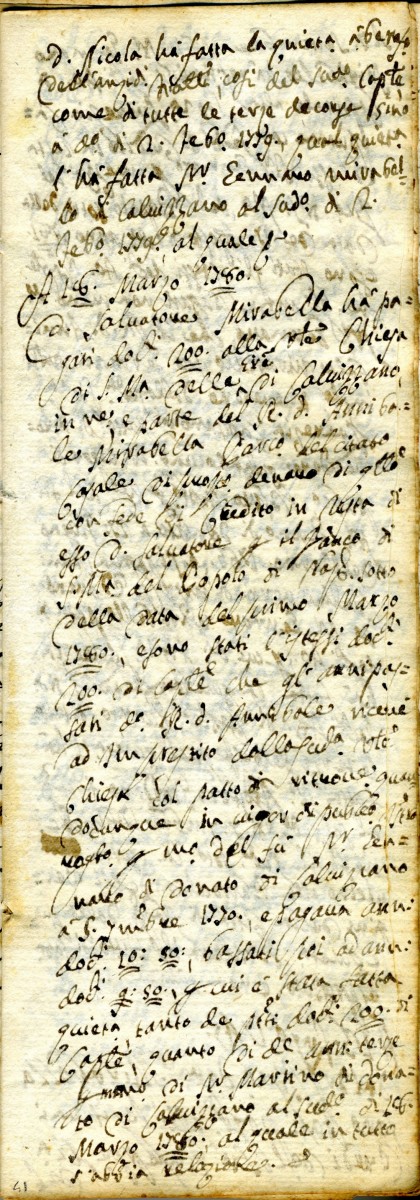 D. Nicola há fatta la quieta á beneficio
dell'anzidi così del sudo. Caple.
come di tutte le terze decorse sino
a do. dì 2. Febo. 1779., qual quieta
l'há fatta Nr. Gennaro Mirabel-
lo di Calvizzano al sudo. dì 2.
Febo. 1779., al quale &
A 16. Marzo 1780.
D. Salvatore Mirabella há pa-
gati doci. 200. alla Chiesa
di S. Ma. delle Gre. di Calvizzano,
in ne., e parte del R. D. Anniba-
le Mirabella Parco. del citato
Casale di suo po. denaro di
con fede di Credito in testa di
esso D. Salvatore p il Banco di
della del Popolo di Nap. sotto
della data del primo Marzo
1780., e sono stati l'istessi doci.
200. di Caple. che gl'anni pas-
sati do. R. D. Annibale ricevé
ad imprestito dalla suda.
Chiesa col patto di ritrone. quan-
docunque in vigor di pubco.
rogto. p mo. del fú Nr. Gen-
naro di Donato di Calvizzano
a 5. 7mbre 1770., e pagava anni
doci. 10: 80:, bassati poi ad anni
doci. 9: 50:, p cui è stata fatta
quieta, tanto de doci. 200. di
Caple., quanto di de. terze
p mano di Nr. Martino di Dona-
to di Calvizzano al sudo. dì 16.
Marzo 1780. al quale in tutto
s'abbia relazione.
51